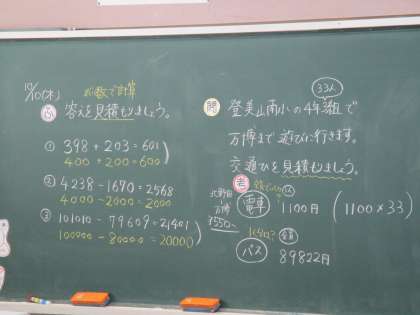 10/10(木)
がい数で計算
答えを見積もりましょう。
① 398 + 203 = 601
400 + 200 = 600
② 4238 - 1670 = 2568
4000 - 2000 = 2000
③ 101010 - 79609 = 21401
100000 - 80000 = 20000
33人
問 登美山南小の4年
で
万博まで遊びに行きます。
交通ひを見積もりましょう。
万博
¥550
電車 1100円 (1100×33)
バス 89822円